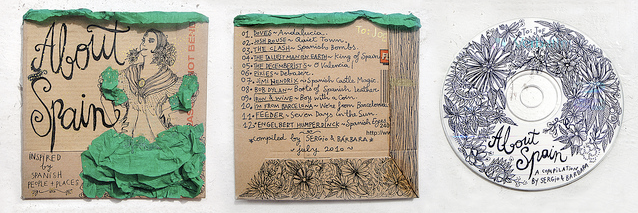 About
Spain
INSPIRED
by
SPANISH
PEOPLE + PLACES
NOT BEND
To: Joe
01. DOVES ~ Andalucia.
02. Quiet Town.
03. THE CLASH ~ Spanish Bombs.
04. THE TALLEST MAN ON EARTH ~ King of Spain
05. THE DECEMBERISTS ~ O Valencia!
06. PIXIES ~ Debaser.
07. JIMI HENDRIX ~ Spanish Castle Magic.
08. BOB DYLAN ~ Boots of Spanish Leather.
09. IRON & WINE ~ Boy with a Coin.
10. I'M FROM BARCELONA ~ We're from Barcelona.
11. FEEDER ~ Seven Days in the Sun.
12. ENGELBERT HUMPERDINCK ~ Spanish Eyes
compiled by SERGIO & BARBARA
~ july 2010 ~
http://ww
To: Joe
About
Spain
A COMPILATION
BY SERGIO & BARBARA